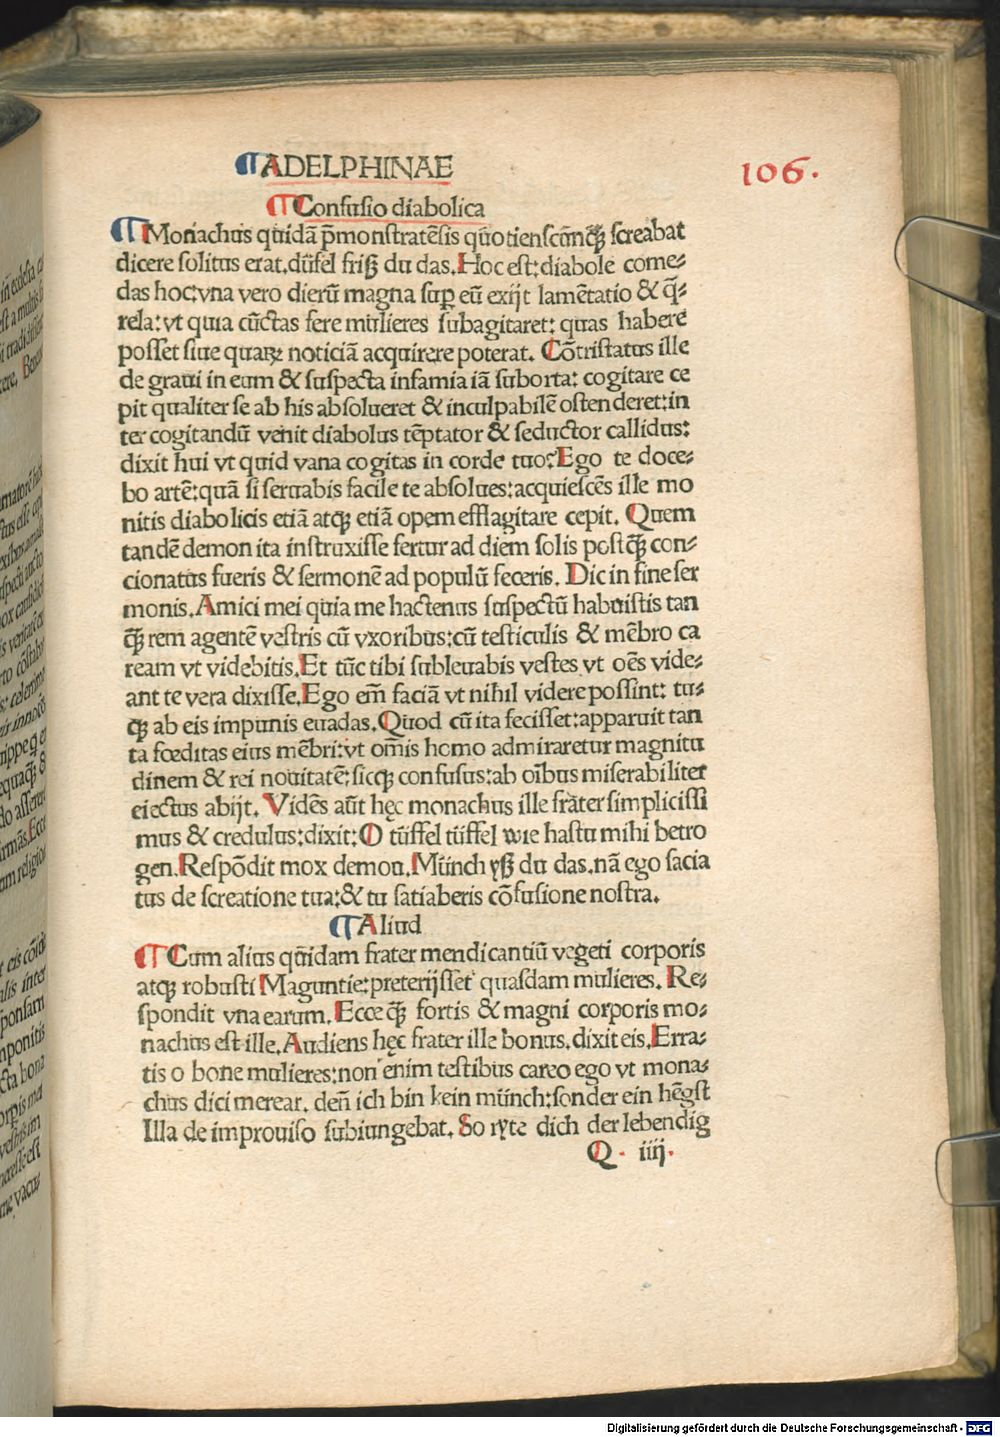 ¶ADELPHINAE
106.
¶Confusio diabolica
¶Monachus quidã p̃monstratẽsis quotienscũnꝙ̃ screabat
dicere solitus erat.düfel friß du das.Hoc est:diabole come⸗
das hoc:vna vero dierũ magna suꝑ eũ exijt lamẽtatio & q̃⸗
rela:vt quia cũctas fere mulieres subagitaret: quas habere
posset siue quaꝝ noticiã acquirere poterat. Cõtristatus ille
de graui in eum & suspecta infamia iã suborta: cogitare ce
pit qualiter se ab his absolueret & inculpabilẽ ostenderet:in
ter cogitandũ venit diabolus tẽptator & seductor callidus:
dixit hui vt quid vana cogitas in corde tuo?Ego te doce⸗
bo artẽ:quã si seruabis facile te absolues:acquiescẽs ille mo
nitis diabolicis etiã atqꝫ etiã opem efflagitare cepit. Quem
tandẽ demon ita instruxisse fertur ad diem solis postꝙ̃ con⸗
cionatus fueris & sermonẽ ad populũ feceris. Dic in fine ser
monis.Amici mei quia me hactenus suspectũ habuistis tan
ꝙ̃ rem agentẽ vestris cũ vxoribus:cũ testiculis & mẽbro ca
ream vt videbitis.Et tũc tibi subleuabis vestes vt oẽs vide⸗
ant te vera dixisse.Ego em̃ faciã vt nihil videre possint: tu⸗
qꝫ ab eis impunis euadas.Quod cũ ita fecisset:apparuit tan
ta fœditas eius mẽbri:vt om̃is homo admiraretur magnitu
dinem & rei nouitatẽ:sicqꝫ confusus:ab oĩbus miserabiliter
eiectus abijt. Vidẽs aũt hęc monachus ille frater simplicissi
mus & credulus:dixit:O tüffel tüffel wie hastu mihi betro
gen.Respõdit mox demon.Münch yß du das.nã ego sacia
tus de screatione tua:& tu satiaberis cõfusione nostra.
¶Aliud
¶Cum alius quidam frater mendicantiũ vegeti corporis
atqꝫ robusti Maguntie:preterijsset quasdam mulieres. Re⸗
spondit vna earum.Ecce ꝙ̃ fortis & magni corporis mo⸗
nachus est ille.Audiens hęc frater ille bonus.dixit eis.Erra⸗
tis o bone mulieres:non enim testibus careo ego vt mona⸗
chus dici merear. deñ ich bin kein münch:sonder ein hẽgst
Illa de improuiso subiungebat. So ryte dich der lebendig
Q · iiij·
in ecclesia
est a multis
Digitalisierung gefördert durch die Deutsche Forschungsgemeinschaft - DFG